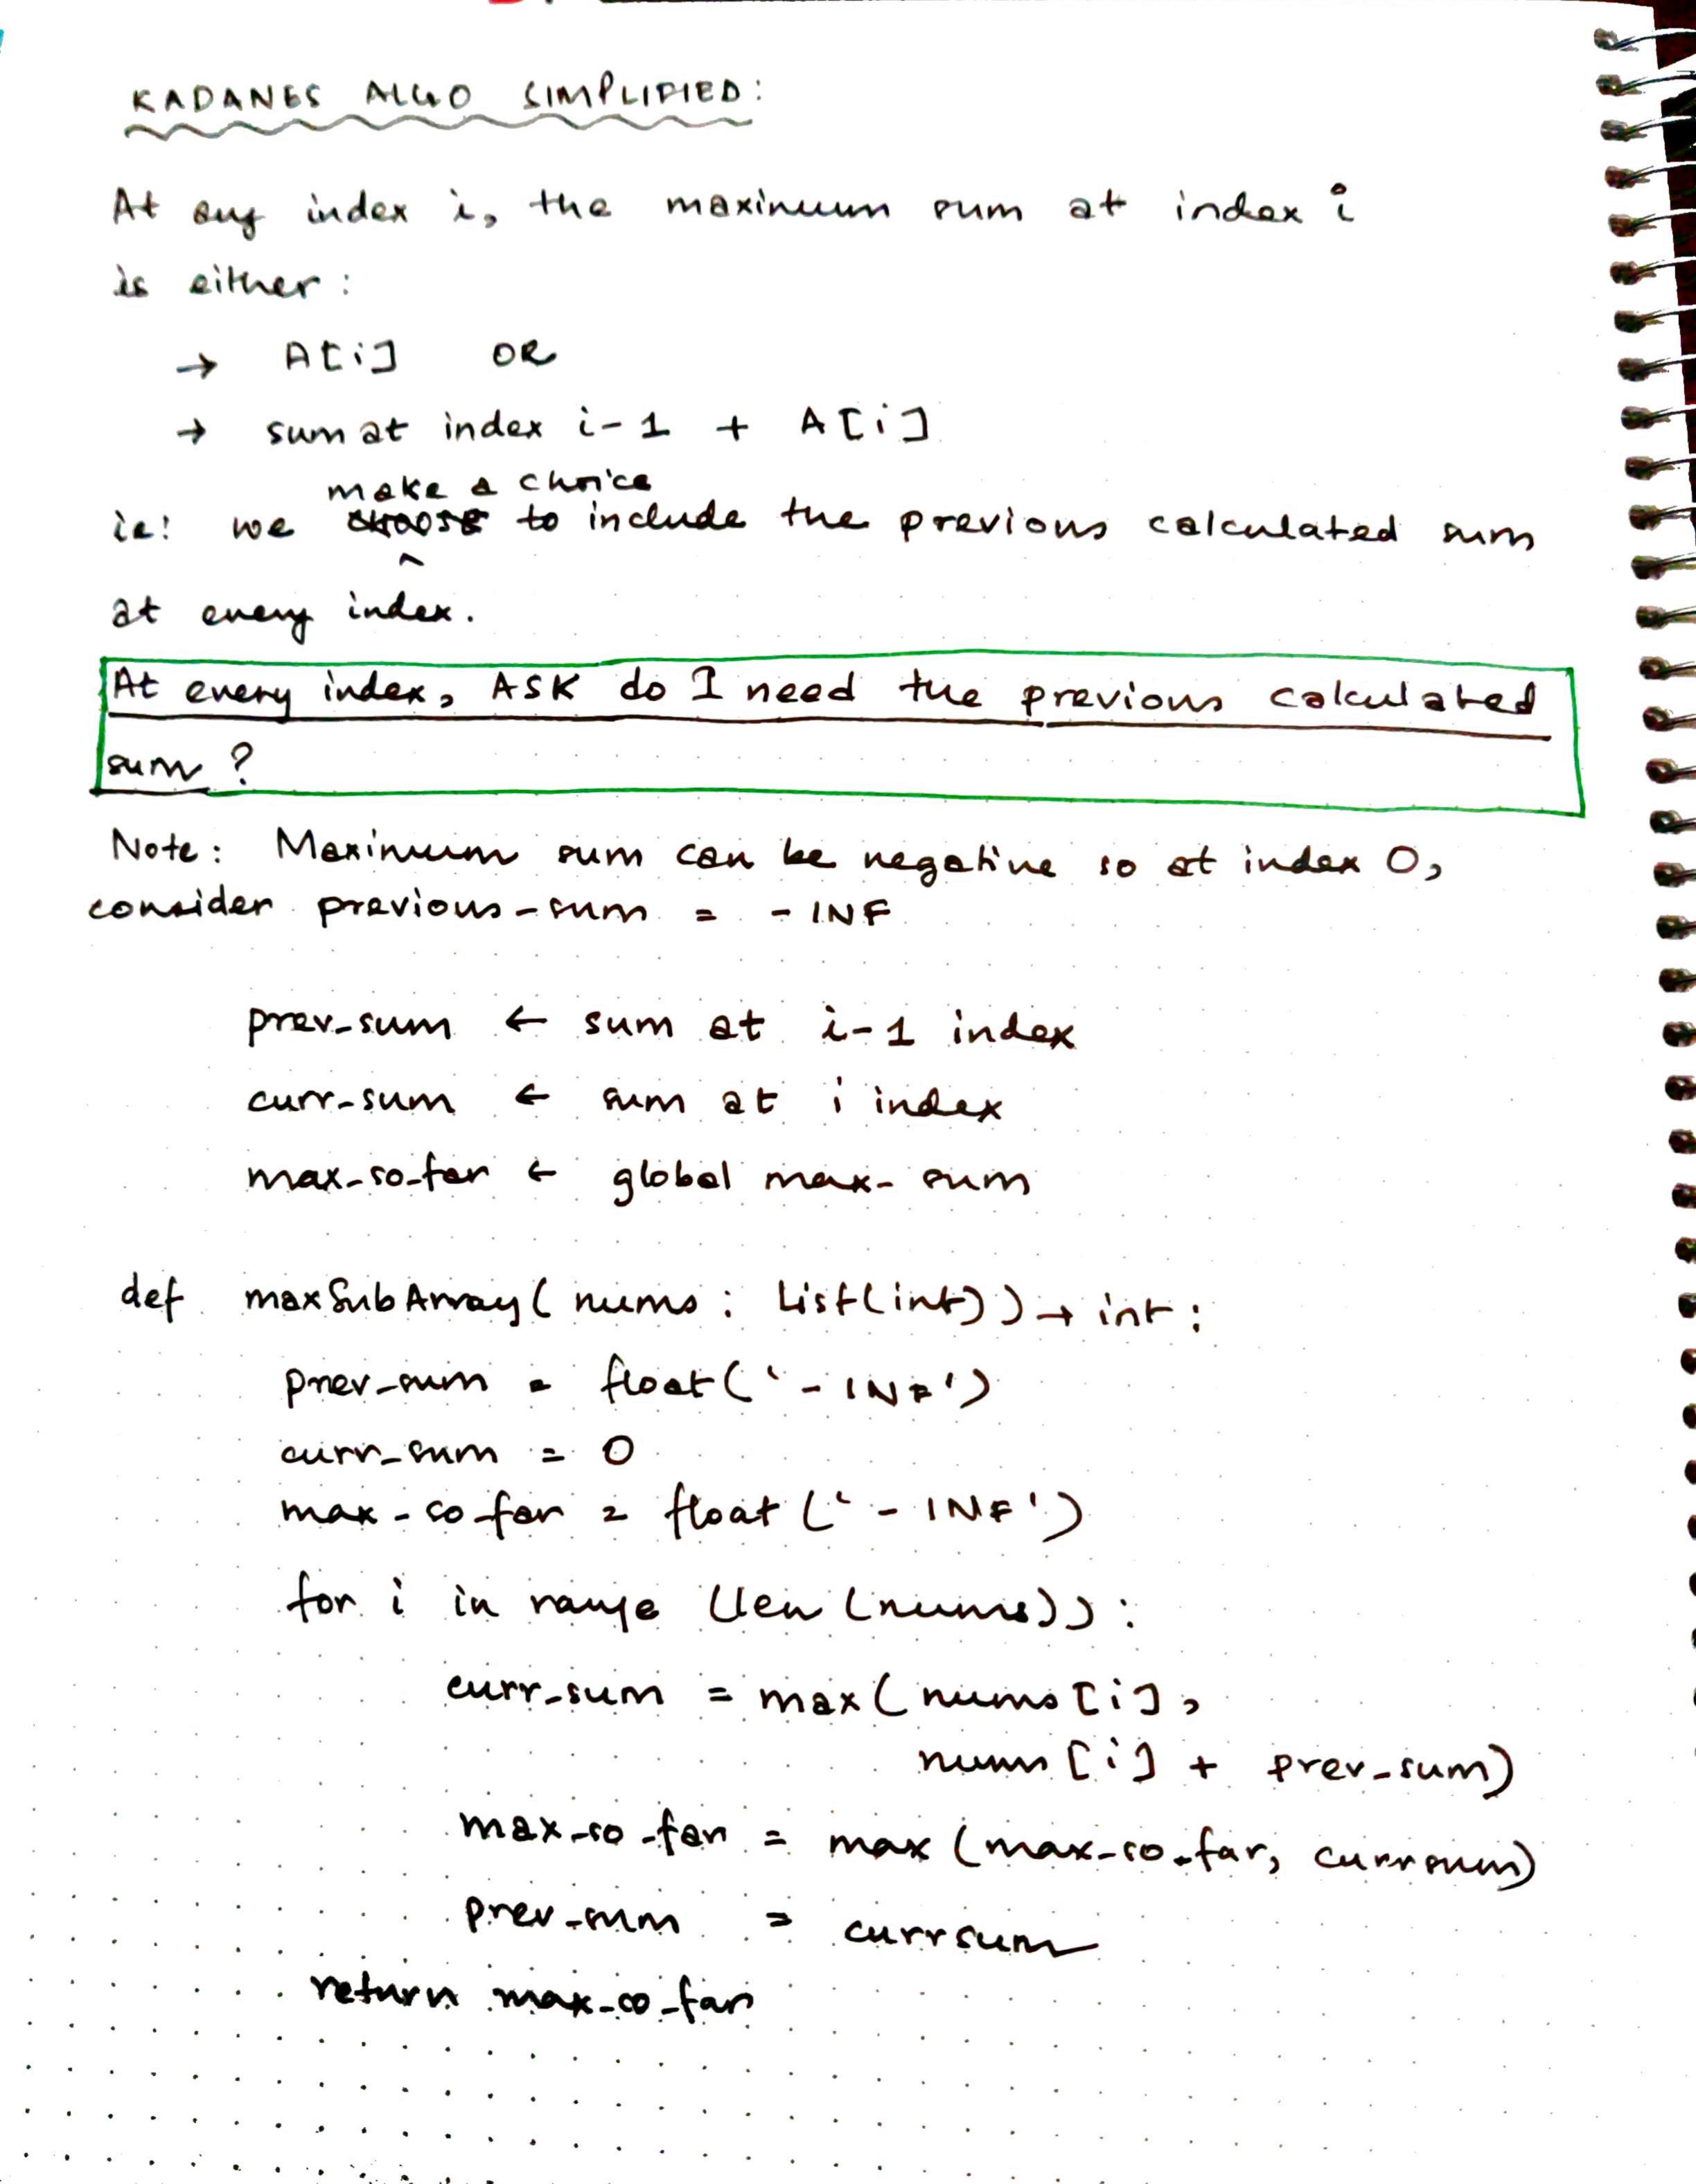 KADANES ALGO SIMPLIFIED:
At any index i, the maximum sum at index i
is either:
→ A[i] OR
→ sum at index i-1 + A[i]
make a choice
ie: we choose to include the previous calculated sum
at every index.
At every index, ASK do I need the previous calculated
sum ?
Note: Maximum sum can be negative so at index 0,
consider previous-sum = -INF
prev-sum ← sum at i-1 index
curr-sum ← sum at i index
max-so-far ← global max-sum
def maxSubArray( nums : List(int)) → int :
prev-sum = float(‘-INF')
curr-sum = 0
max-so-far = float(‘-INF')
for i in range (len (nums)) :
curr-sum = max( nums[i],
nums[i] + prev-sum)
max-so-far = max (max-so-far, currsum)
prev-sum = currsum
return max-so-far